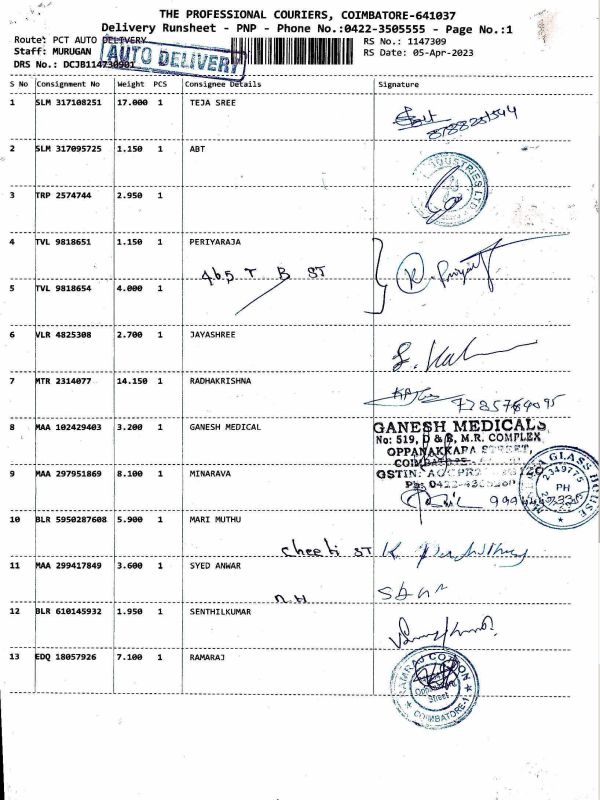 THE PROFESSIONAL COURIERS, COIMBATORE-641037
Delivery Runsheet - PNP - Phone No.:0422-3505555 - Page No.:1
Route: PCT AUTO DELIVERY
RS No.: 1147309
Staff: MURUGAN
AUTO DELIVERY
RS Date: 05-Apr-2023
DRS No.: DCJB114730901
S No Consignment No Weight PCS Consignee Details Signature
1 SLM 317108251 17.000 1 TEJA SREE
2 SLM 317095725 1.150 1 ABT
INDUSTRIES LTD
3 TRP 2574744 2.950 1
4 TVL 9818651 1.150 1 PERIYARAJA
465 T B ST
5 TVL 9818654 4.000 1
6 VLR 4825308 2.700 1 JAYASHREE
7 MTR 2314077 14.150 1 RADHAKRISHNA
8 MAA 102429403 3.200 1 GANESH MEDICAL
GANESH MEDICALS
No: 519, D & B, M.R. COMPLEX
OPPANAKKARA STREET,
9 MAA 297951869 8.100 1 MINARAVA
GSTIN:
GLASS HOUSE
2349775
PH
10 BLR 5950287608 5.900 1 MARI MUTHU
cheeti ST
11 MAA 299417849 3.600 1 SYED ANWAR
n.H
12 BLR 610145932 1.950 1 SENTHILKUMAR
13 EDQ 18057926 7.100 1 RAMARAJ
RAMRAJ COTTON
Street
COIMBATORE-1